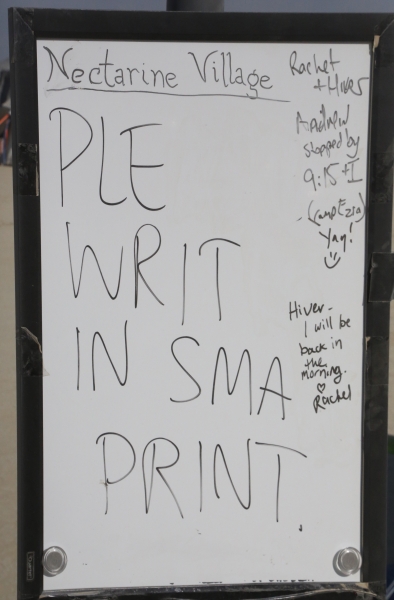 Nectarine Village
PLE
WRIT
IN SMA
PRINT.
Rachet
+ Hives
Andrew
stopped by
9:15 + I
- (camp Ezra)
Yay!
Hiver -
I will be
back in
the
morning.
♡
Rachel